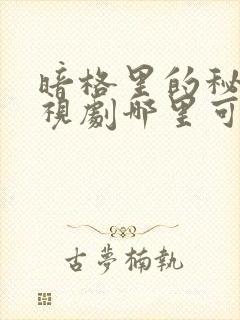 暗格里的秘
視劇哪里可
古夢楠執